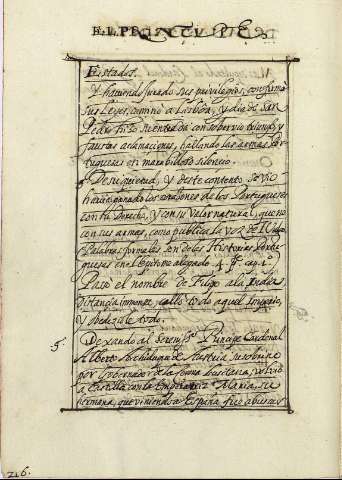 EL PRINCIPE
Estados.
Y haviendo jurado sus privilegios, confirmó
sus leyes, caminó a Lisboa, y dia de San
Pedro hizo su entrada con sobervio triunfo, y
faustas aclamaciones, hallando las armas Por-
tuguesas en marabilloso silencio.
De su quietud, y deste contento se vio
haver ganado los corazones de los Portugueses
con su Derecho, y con su Valor natural, que no
con sus armas, como publica la voz de
Palabras formales son de los Historias Portu-
guesas en alegado
Pasó el nombre de Felipe a la India
Distancia immensa, calló todo aquel imperio,
y obedeciole todo.
5. Dexando al Sereniss.º Principe Cardenal
Alberto Archiduque de Austria su sobrino
por Governador de la Corona Lusitana, volvió
a Castilla con la Emperatriz Maria, su
hermana, que viniendo a España
216.